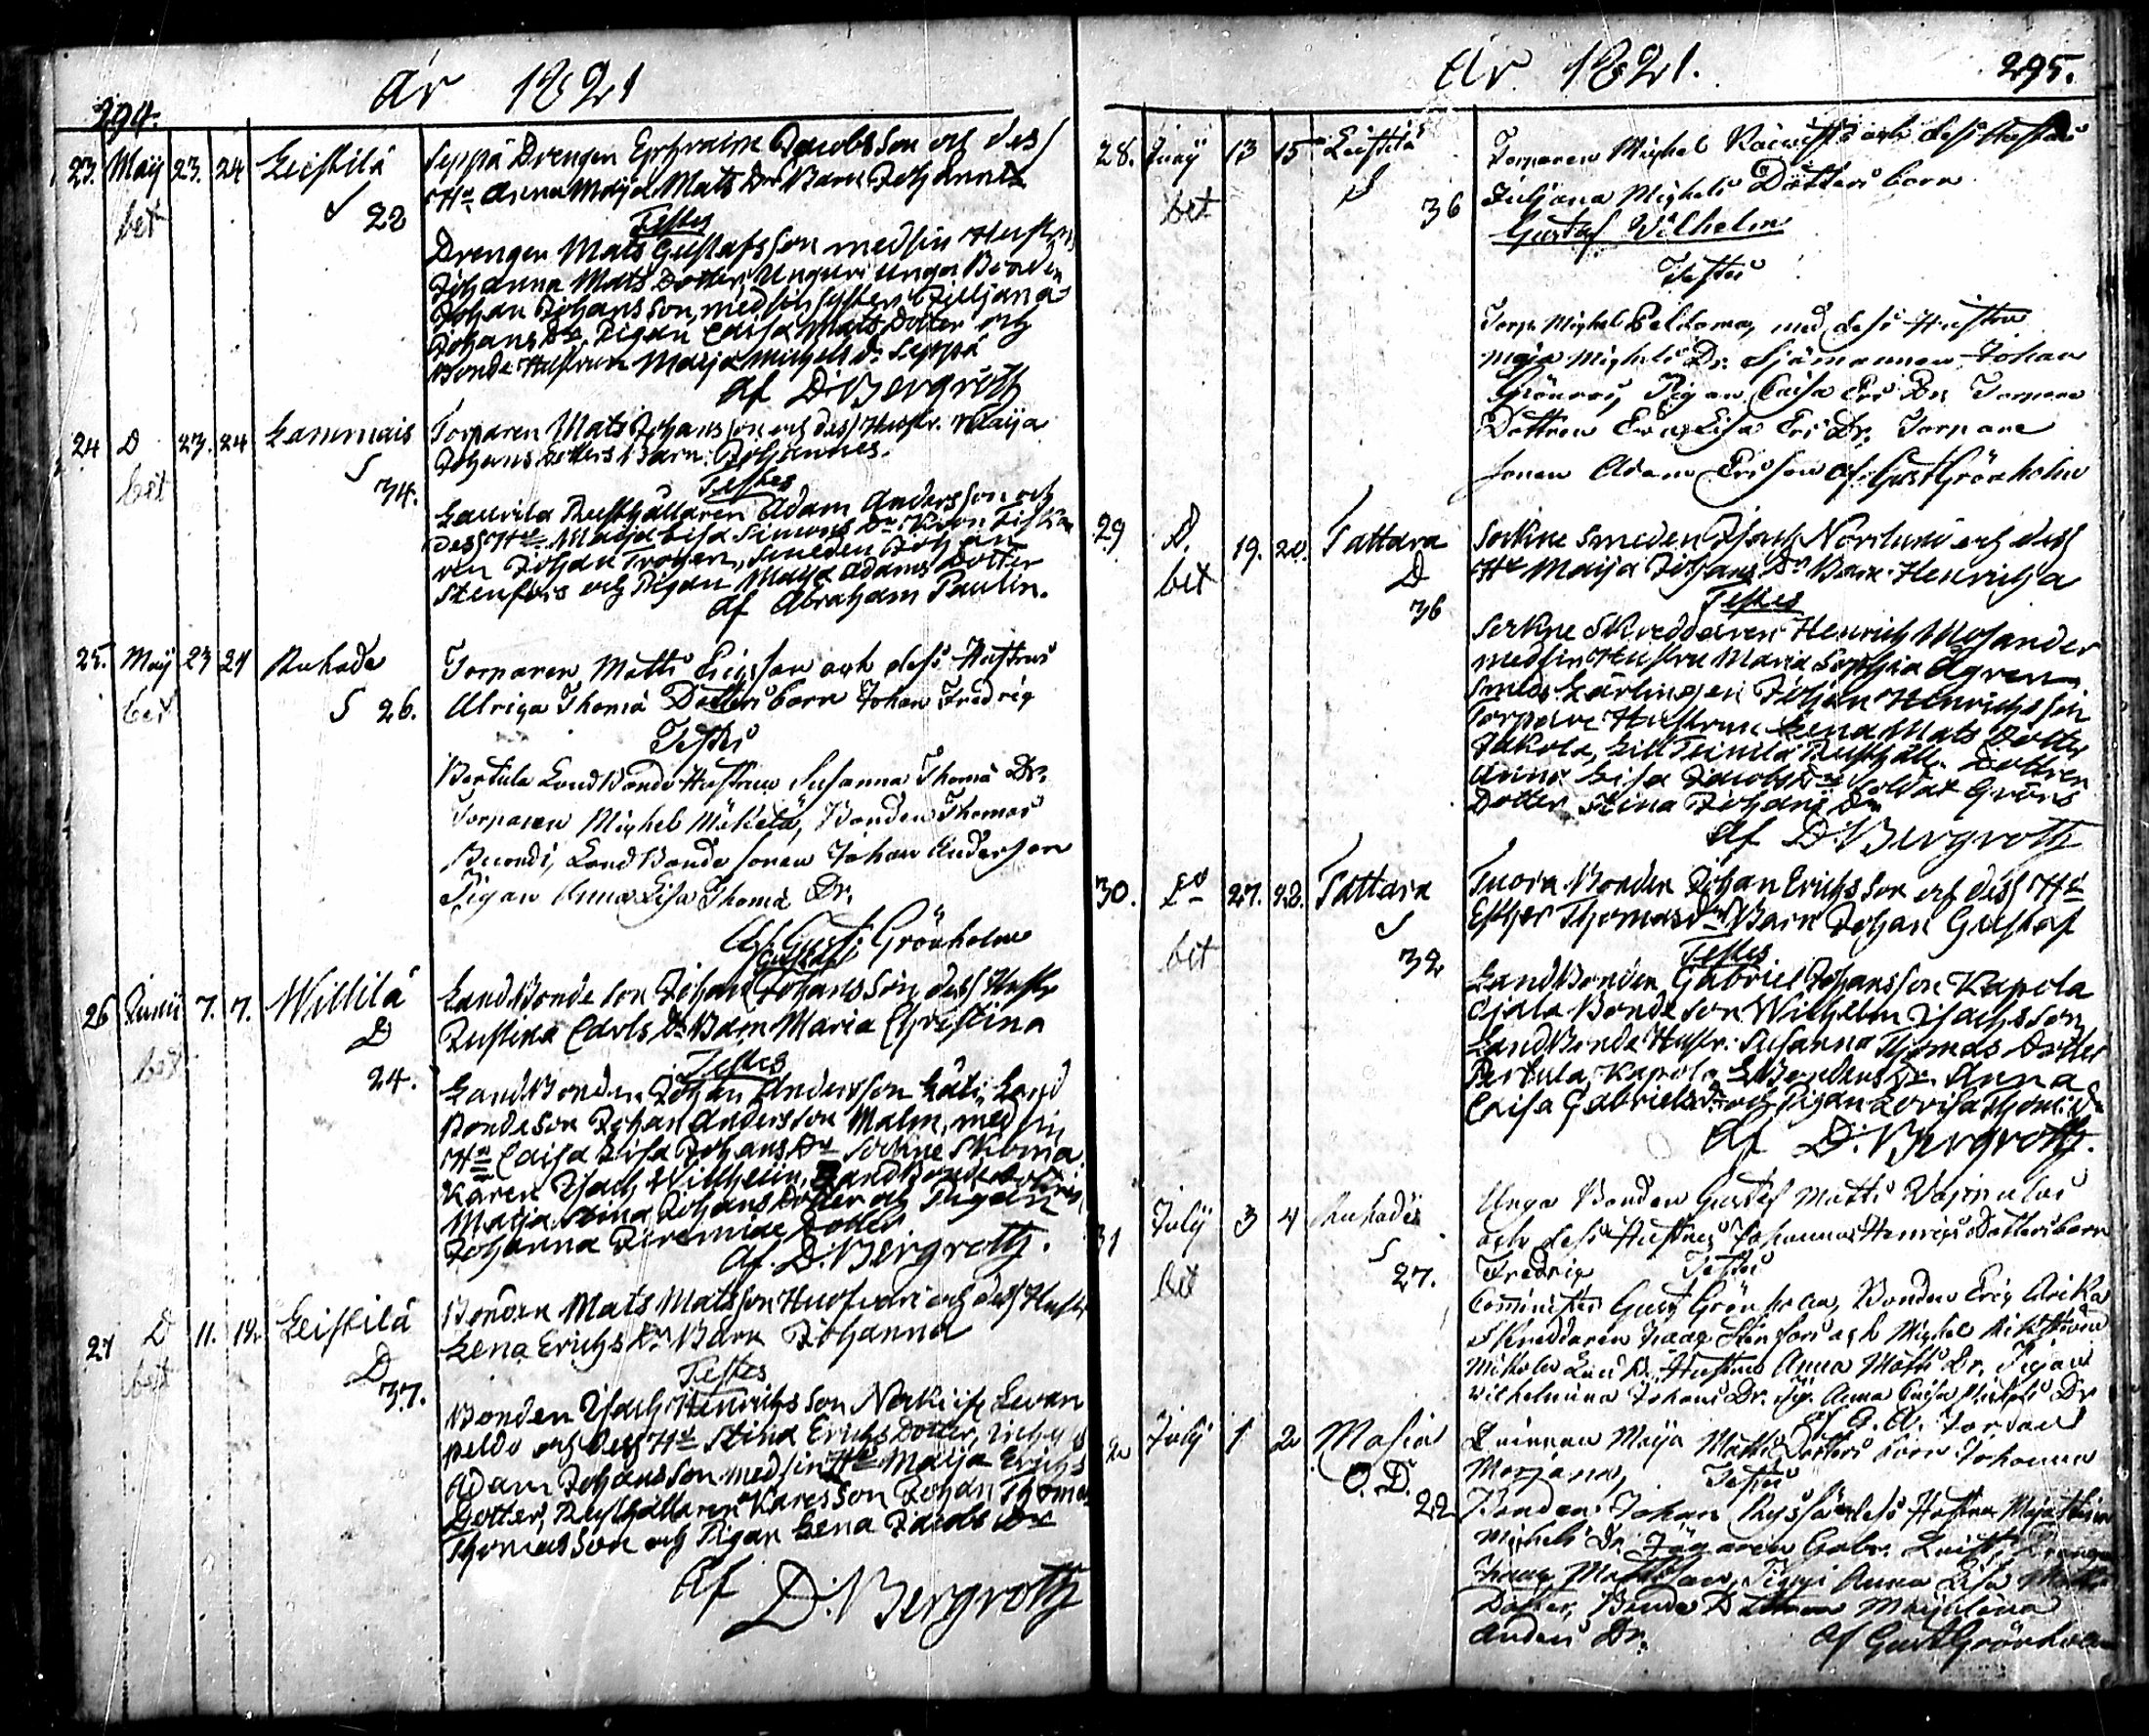 294.
år 1821
23. Maij 23. 24 Leistilä Seppä Drengen Ephraim Jacobsson och dess
bet S 22 H:u Anna Maija Mats Dr Barn Johannes
Testes
Drengen Mats Gustafsson med sin Hustru
Johanna Mats Dotter, Unguri unga Bonden
Johan Johansson, med sin syster Juljana
Johans Dr, Pigan Caisa Mats Dotter och
Bonde Hustrun Maija Michels Dr Seppä
af D: Bergroth
24 D 23. 24 Lammais Torparen Mats Johansson och dess Hustr. Maija
bet S 34. Johans Dotters Barn: Johannes.
Testes
Laurila Rusthållaren Adam Andersson och
dess H:u Maija Lisa Simons Dr
Johan Trogen, Smeden Johan
Stenfors och Pigan Maija Adams Dotter
af Abraham Paulin.
25. Maij 23 24 Anhade Torparen Matts Ericsson och dess Hustrus
bet S 26. Ulrica Thomä Dotters barn Johan Fredric
Testes
Bertula Landbonde Hustrun Susanna Thomä Dr.
Torparen Michel Mäkelä, Bonden Thomas
Landbonde sonen Johan Andersson
Pigan Anna Lisa Thomä Dr.
Af Gust: Grönholm
26 Junii 7. 7. Willilä LandBonde son Johan Johansson, dess Hustr
bet D 24. Justina Carls Dr Barn Maria Christina
Testes
LandBonden Johan Andersson Land
Bondeson Johan Andersson Malm, med sin
H:u Caisa Lisa Johans Dr Sockne Skoma
karen Isach Willhelin, LandBonde Dottren
Maija Stina Johans Dotter och Pigan
Johanna Jeremiae Dotter
af D: Bergroth.
27 D 11. 12. Leistilä Bonden Mats Matsson och dess Hustr
bet D 37. Lena Erichs Dr Barn Johanna
Testes
Bonden Isach Henrichsson
peldo och dess H:u Stina Erichs Dotter,
Adam Johansson med sin H:u Maija Erichs
Dotter, Rusthållaren Karesson Johan Thomas
Thomasson och Pigan Lena Jacobs Dr
af D: Bergroth
År 1821.
295.
28. Junij 13 15 Leistilä Torparen Michel och dess Hustrus
bet S 36 Juljana Michels Dotters barn
Gustaf Wilhelm
Testes
Torp. Michel Peldoma, med dess Hustru
Maja Michels Dr. Sjömannen Johan
Grönros, Pigan Caisa Eri Dr, Torpare
Dottren Eva Lisa Eri Dr. Torpare
sonen Adam Ericsson af Gust Grönholm
29 D. 19. 20. Tattara Sockne smeden Isach Norlund och dess
bet D 36 H:u Maija Johans Dr Barn Henricha
Testes
Sockne Skreddaren Henrich Mosander
med sin Hustru Maria Sophia Ågren
Smeds Lärlingen Johan Henrichsson
Torpare Hustrun Lena Mats Dotter
Jakola, Rusthåll. Dottren
Anna Lisa Jacobs Dr Soldat Gröns
Dotter Stina Johans Dr
af D: Bergroth
30. D 27. 28. Tattara Tuora Bonden Johan Erichsson och dess H:u
bet S 32 Esther Thomas Dr Barn Johan Gustaf
Testes
LandBonden Gabriel Johansson Kapola
Ojala Bonde son Wilhelm Isachsson
LandBonde Hustr. Susanna Thomas Dotter
Pertula, Kapola L Bondens Dr. Anna
Caisa Gabriels Dr och Pigan Lovisa Thom: Dr
af D: Bergroth.
31 Julij 3 4 Anhade Unga Bonden Gustaf Matts
bet S 27. och dess Hustrus Johanna Henrics Dotters barn
Fredric Testes
Comminister Gust Grönholm, Bonden Eric
Skreddaren Isaac Stenfors och Michel
Hustrun Anna Matts Dr. Pigan
Wilhelmina Johans Dr. Pig. Anna Caisa Michels Dr
af Jordan
Julij 1 2 Masia Qvinnan Maija Matts Dotters barn Johanna
O. D. 22 Marjana, Testes
Bonden Johan dess Hustru Maja Stina
Michels Dr. Gabr. Qvist, Drengen
Isaac Mattsson, Pigan Anna Lisa Matts
Dotter, Bonde Dottren
Anders Dr. af Gust Grönholm